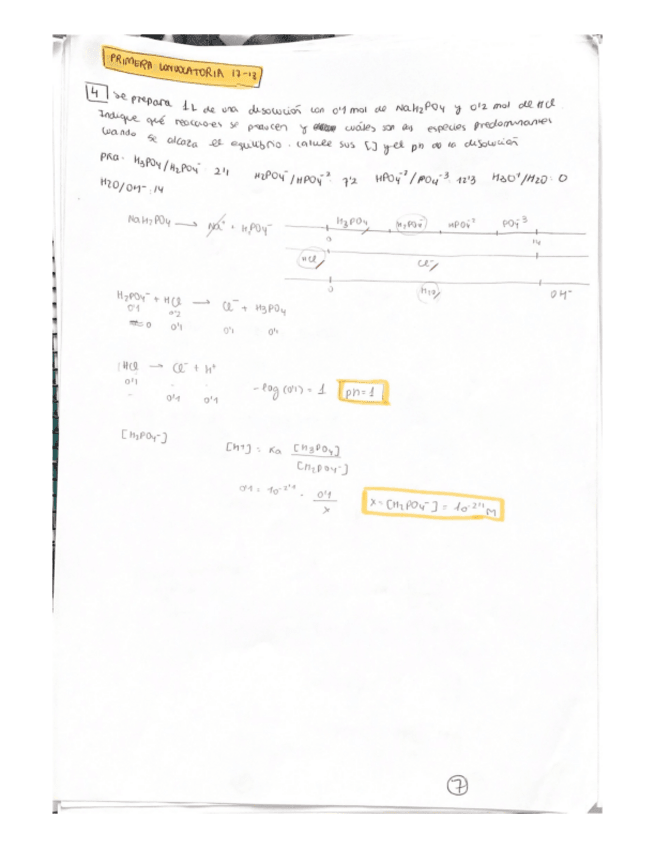 PRIMERA CONVOCATORIA 17-18
4 Se prepara 1L de una disolución con 0'1 mol de NaH2PO4 y 0'2 mol de HCl.
Indique qué reacciones se producen y cuáles son las especies predominantes
cuando se alcanza el equilibrio. calcule sus [] y el pH de la disolución
pka: H3PO4/H2PO4-: 2'1 H2PO4-/HPO4-2: 7'2 HPO4-2/PO4-3: 12'3 H3O+/H2O: 0
H2O/OH-: 14
NaH2PO4 → Na+ + H2PO4-
H3PO4 H2PO4- HPO4-2 PO4-3
0 14
HCl Cl-
0 H2O OH-
H2PO4- + HCl → Cl- + H3PO4
0'1 0'2
≈0 0'1 0'1 0'1
HCl → Cl- + H+
0'1 - -
- 0'1 0'1
-log(0'1) = 1 pH=1
[H2PO4-]
[H+] = Ka [H3PO4]
[H2PO4-]
0'1 = 10-2'1 · 0'1
x
x = [H2PO4-] = 10-2'1 M
7